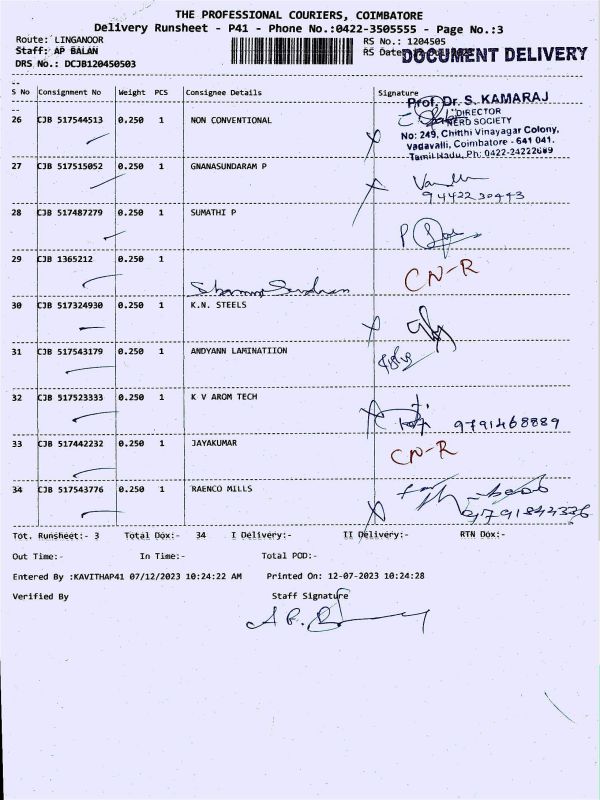 THE PROFESSIONAL COURIERS, COIMBATORE
Delivery Runsheet - P41 - Phone No.:0422-3505555 - Page No.:3
Route: LINGANOOR
RS No.: 1204505
Staff: AP BALAN
RS Date
DOCUMENT DELIVERY
DRS No.: DCJB120450503
S No Consignment No Weight PCS Consignee Details Signature
Prof. Dr. S. KAMARAJ
DIRECTOR
NERD SOCIETY
No: 249, Chithi Vinayagar Colony,
Vadavalli, Coimbatore - 641 041.
Tamil Nadu, Ph: 0422-2422
26 CJB 517544513 0.250 1 NON CONVENTIONAL
27 CJB 517515052 0.250 1 GNANASUNDARAM P
9442230443
28 CJB 517487279 0.250 1 SUMATHI P
29 CJB 1365212 0.250 1
CN-R
30 CJB 517324930 0.250 1 K.N. STEELS
31 CJB 517543179 0.250 1 ANDYANN LAMINATIION
32 CJB 517523333 0.250 1 K V AROM TECH
9791468889
33 CJB 517442232 0.250 1 JAYAKUMAR
CN-R
34 CJB 517543776 0.250 1 RAENCO MILLS
Tot. Runsheet:- 3 Total Dox:- 34 I Delivery:- II Delivery:- RTN Dox:-
Out Time:- In Time:- Total POD:-
Entered By :KAVITHAP41 07/12/2023 10:24:22 AM Printed On: 12-07-2023 10:24:28
Verified By Staff Signature